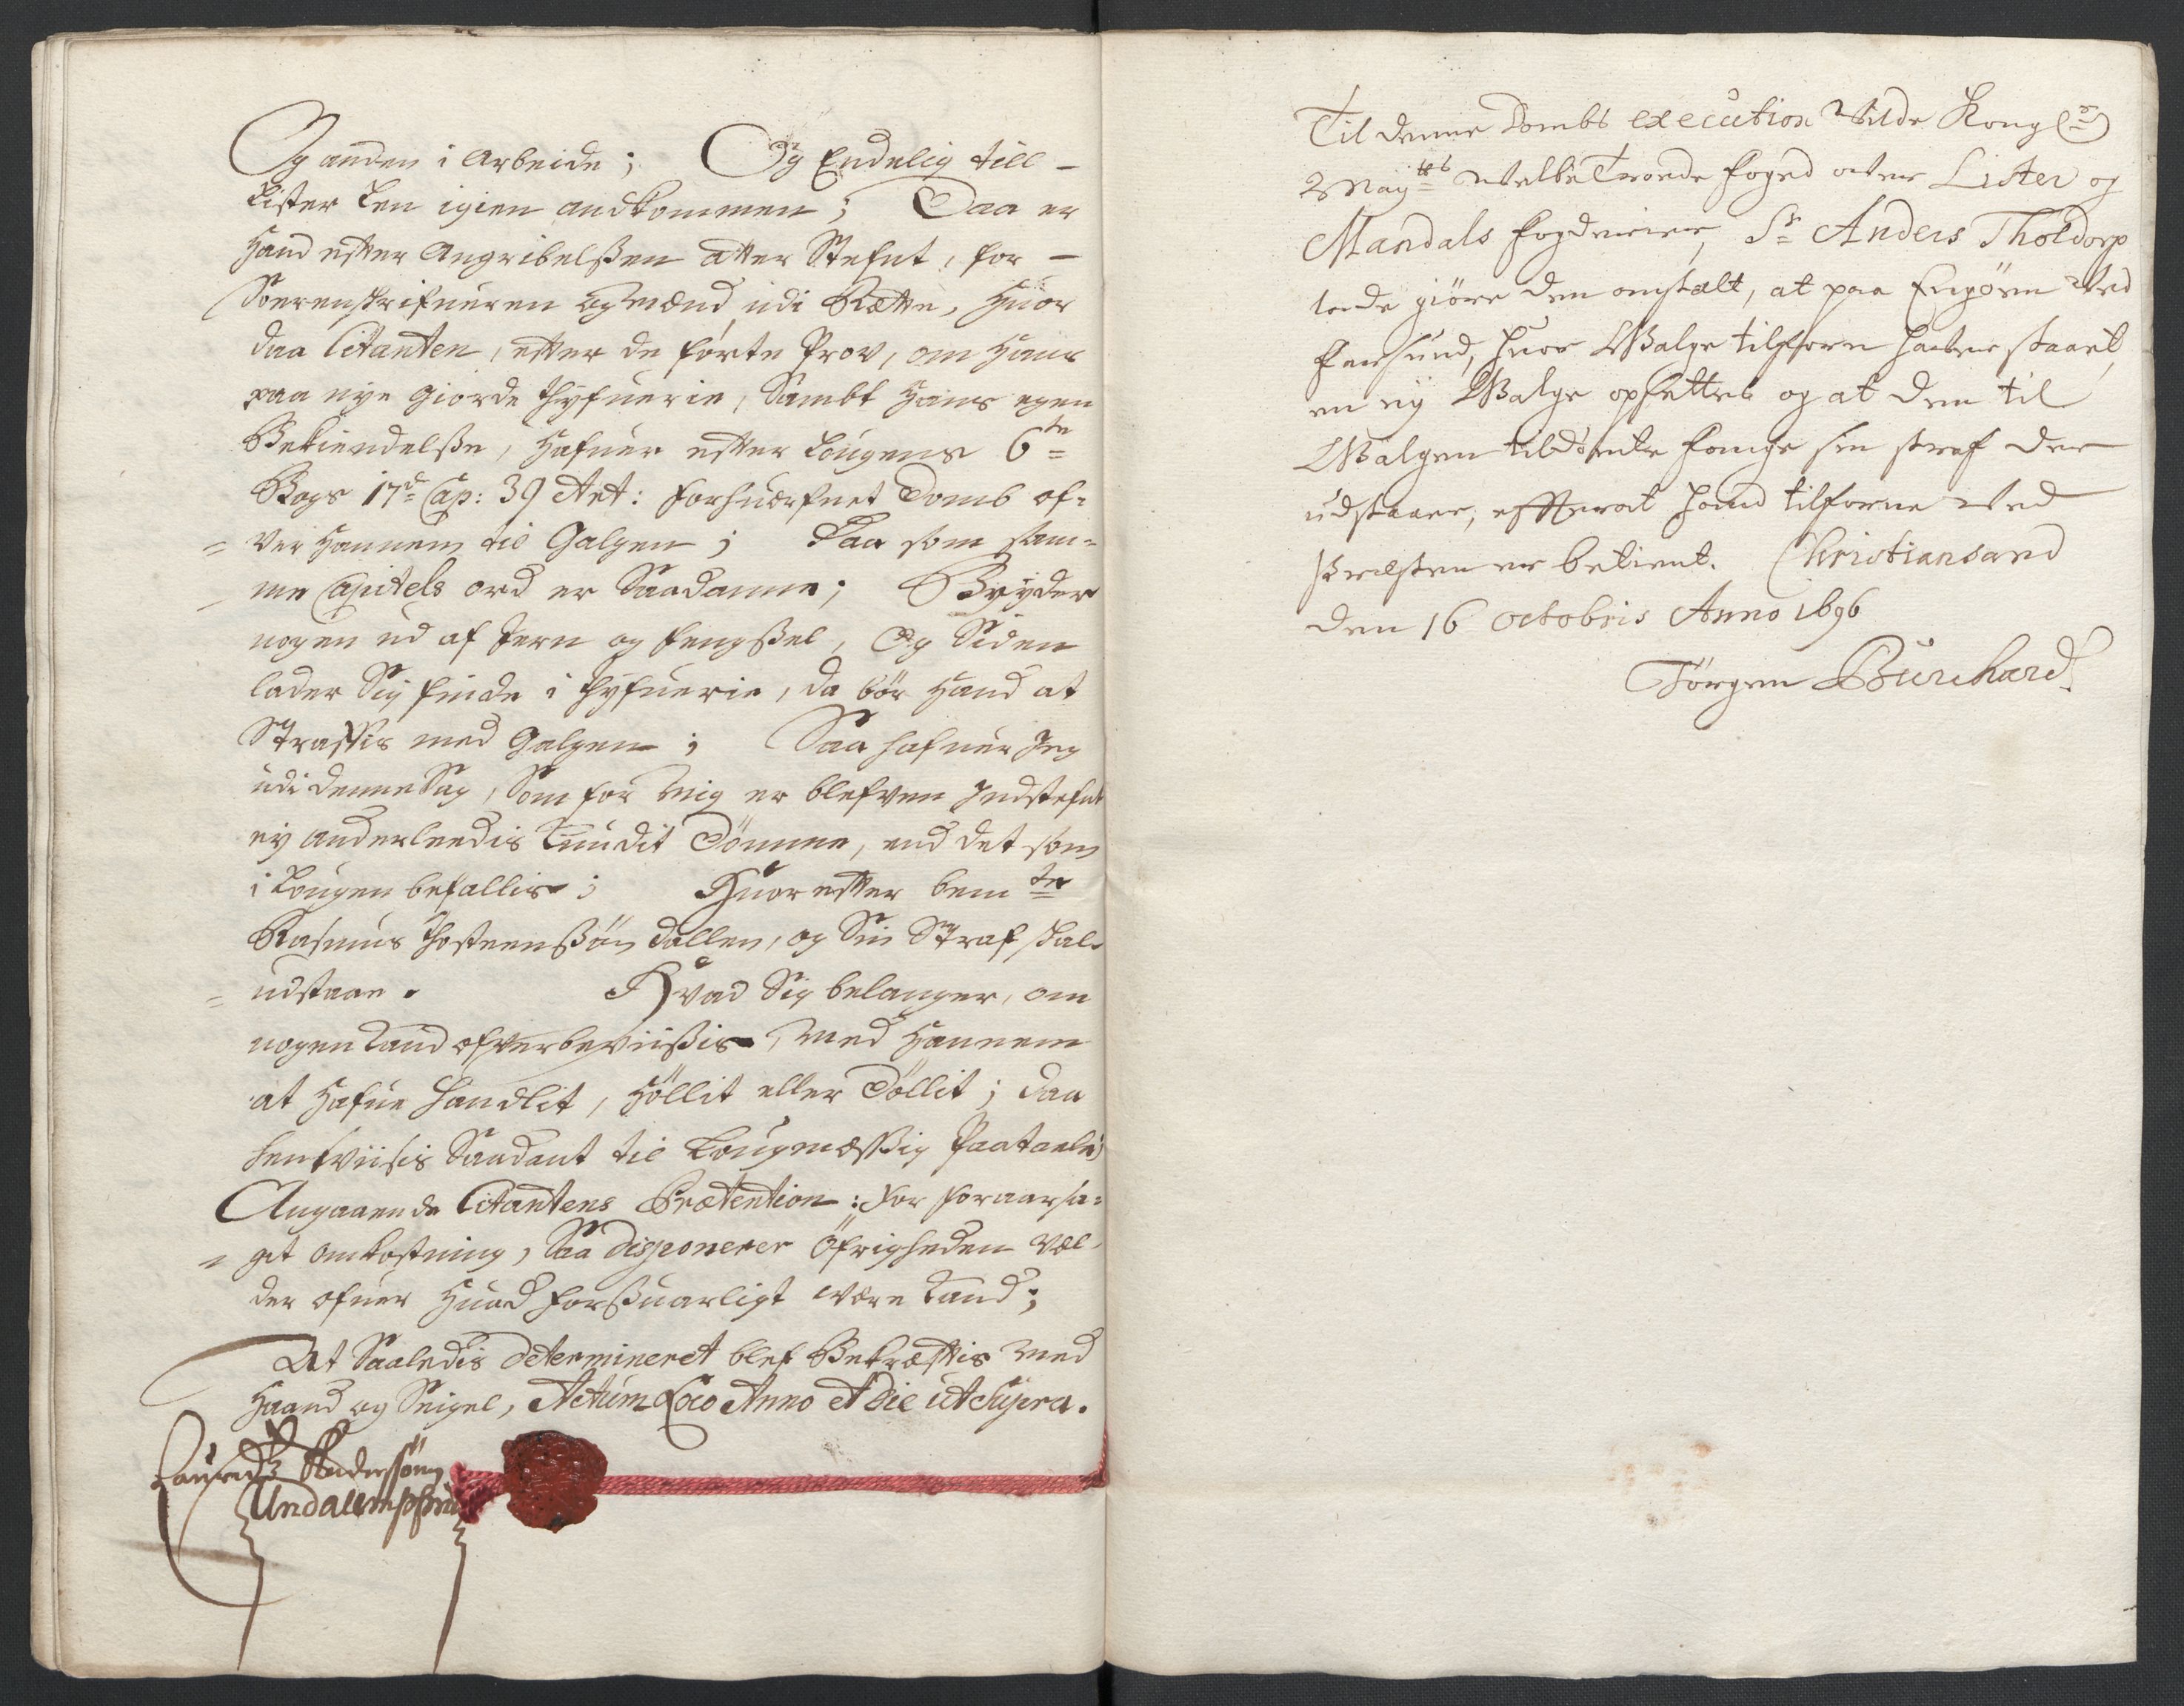 Og anden i Arbeide; Og Endelig till-
Lister Len igien andkommen; Daa er
Hand efter Angribelßen atter Stefnt, for-
Sorenskrifueren og mænd, udi Rette, Huor
daa Citanten, efter de førte Prov, om Hans
paa nye giorde Thyfuerie, Sambt Hans egen
Bekiendelße, Hafuer efter Lougens 6te
Bogs 17de Cap: 39 Art: forhuerfuet Domb of-
ver Hannem til Galgen; Saa som sam-
me Capitels ord er Saadanne; Bryder
nogen ud af Jern og fengßel, Og Siden
lader Sig finde i thyfuerie, da bör Hand at
Straffis med Galgen; Saa hafuer Jeg
udi denne Sag, Som for mig er blefven Indstefnt
ey anderleedis kundit Dömme, end det som
i Lougen befallis; Huorefter bemte
Rasmus Thosteenßön Dallen, og Sin Straf skal
udstaae. Hvad Sig belanger, om
nogen kand ofverbeviißis, med Hannem
at Hafue Handlit, Höllit eller Döllit; Daa
henviisis Saadant til Lougmæßig Paatale
Angaaende Citantens Prætention: for foraarsa-
get Omkostning, Saa disponerer Öfrigheden vel
der ofuer Huad forßuarligt være kand;
At Saaledis determineret blef Bekræftis med
Haand og Seigel, Actum Loco Anno et die ut Supra.
Lauridz Andersßøn
Undallmpfrid
Til denne Dombs execution Vilde Kongl
Maytts Velbetroede foged ofver Lister og
Mandals fogderier, Sr Anders Tholdorp
lade giöre den anstalt, at paa Eigöen Ved
farsund, huor Galge tilforn hafver staaet,
en ny Galge opsettes og at den til
Galgen tildömte fange sin straf der
udstaaer, efterat hand tilforne Ved
Præsten er betient. Christiansand
den 16 Octobris Anno 1696
Jörgen Burchard